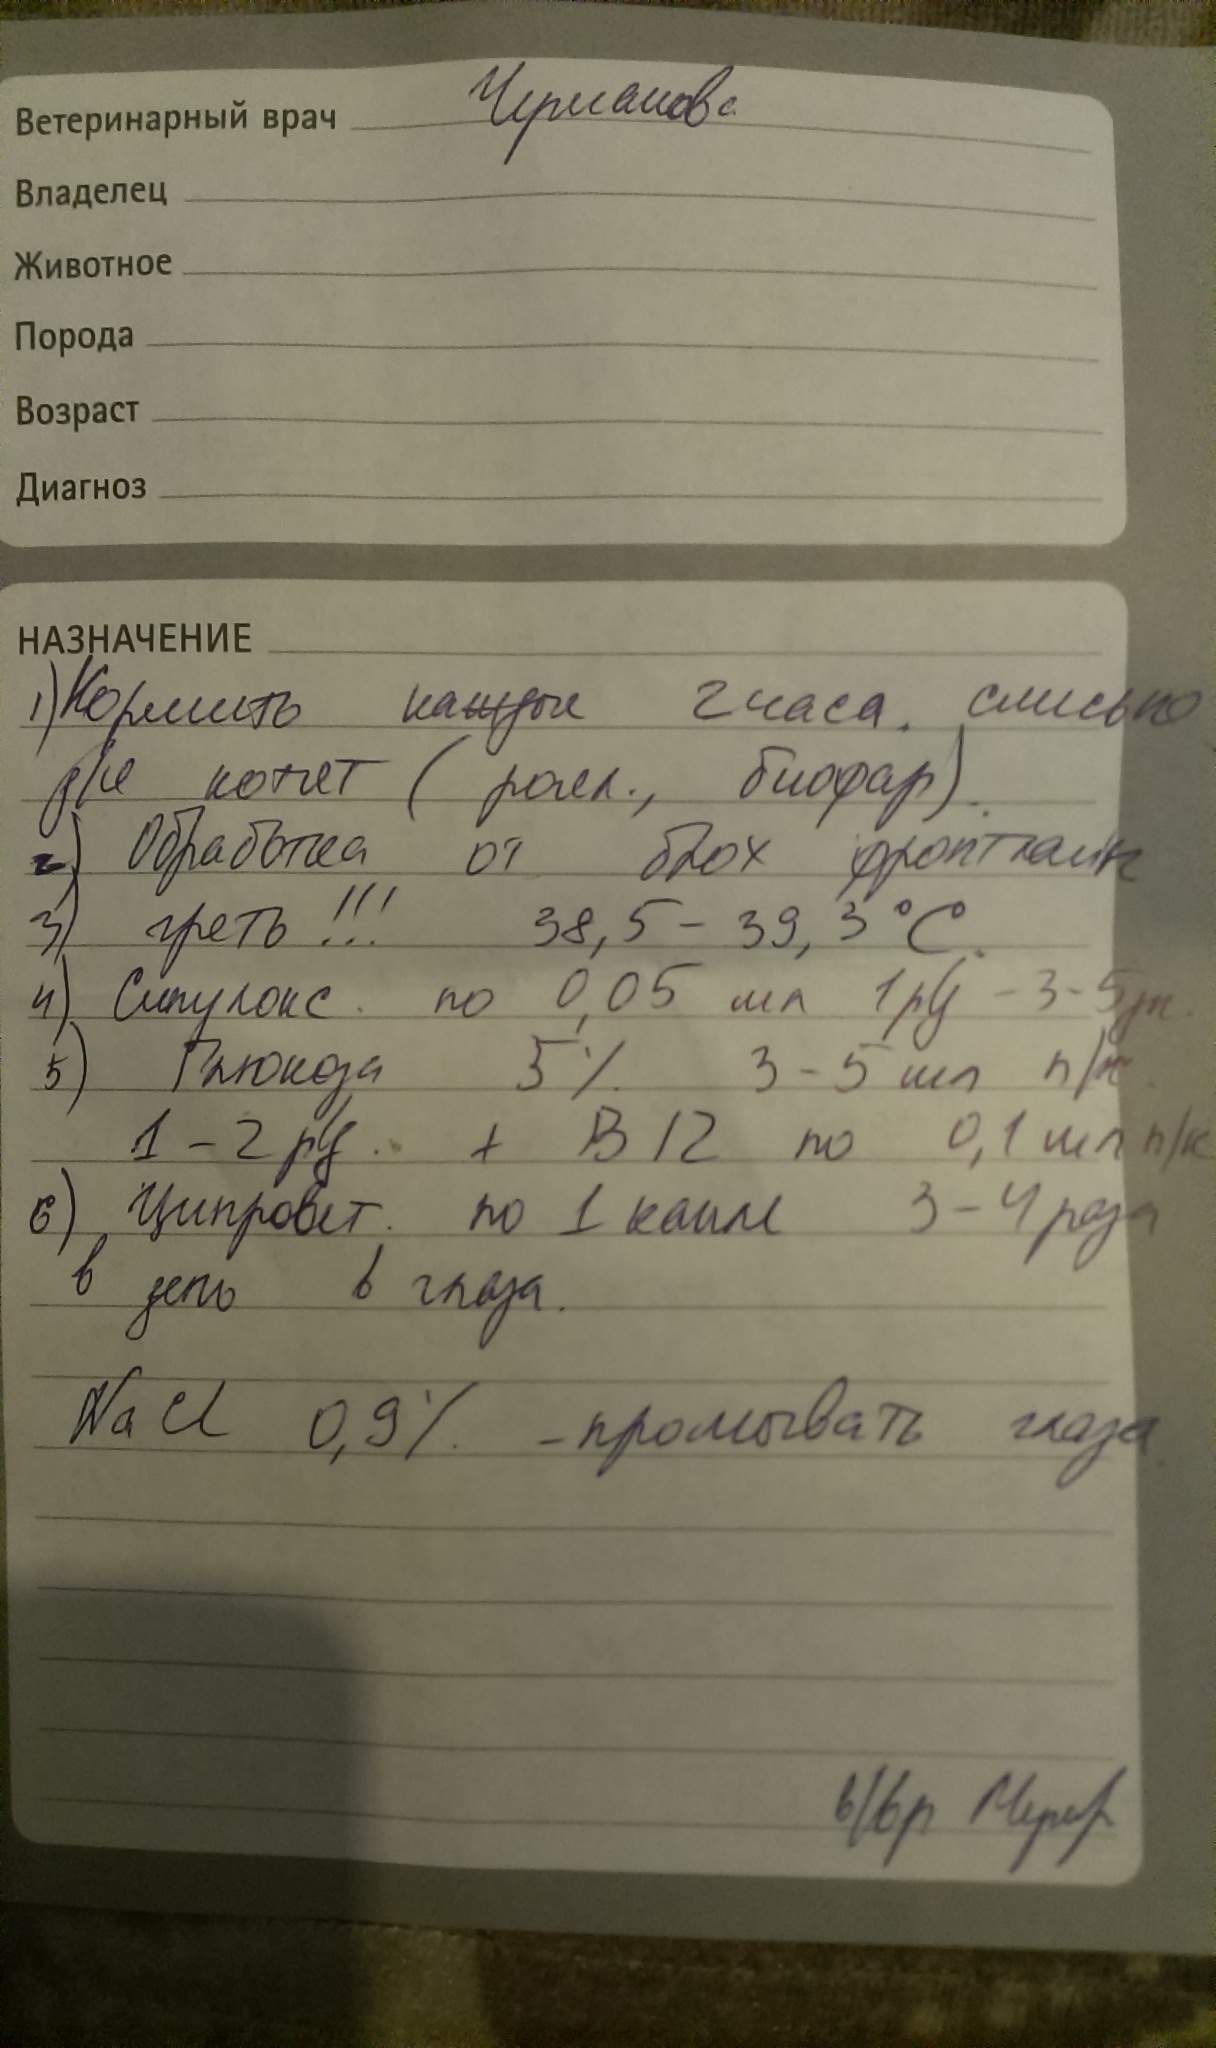 Ветеринарный врач Черманова
Владелец
Животное
Порода
Возраст
Диагноз
НАЗНАЧЕНИЕ
1) Кормить каждые 2 часа. смесью
для котят (роял., биофар).
2) Обработка от блох фронтлайн
3) греть!!! 38,5 - 39,3 °C.
4) Синулокс. по 0,05 мл 1 р/д - 3-5 дн.
5) Глюкоза 5% 3-5 мл п/к.
1-2 р/д. + B12 по 0,1 мл п/к
6) Ципровет. по 1 капле 3-4 раза
в день в глаза.
NaCl 0,9% - промывать глаза
в/вр